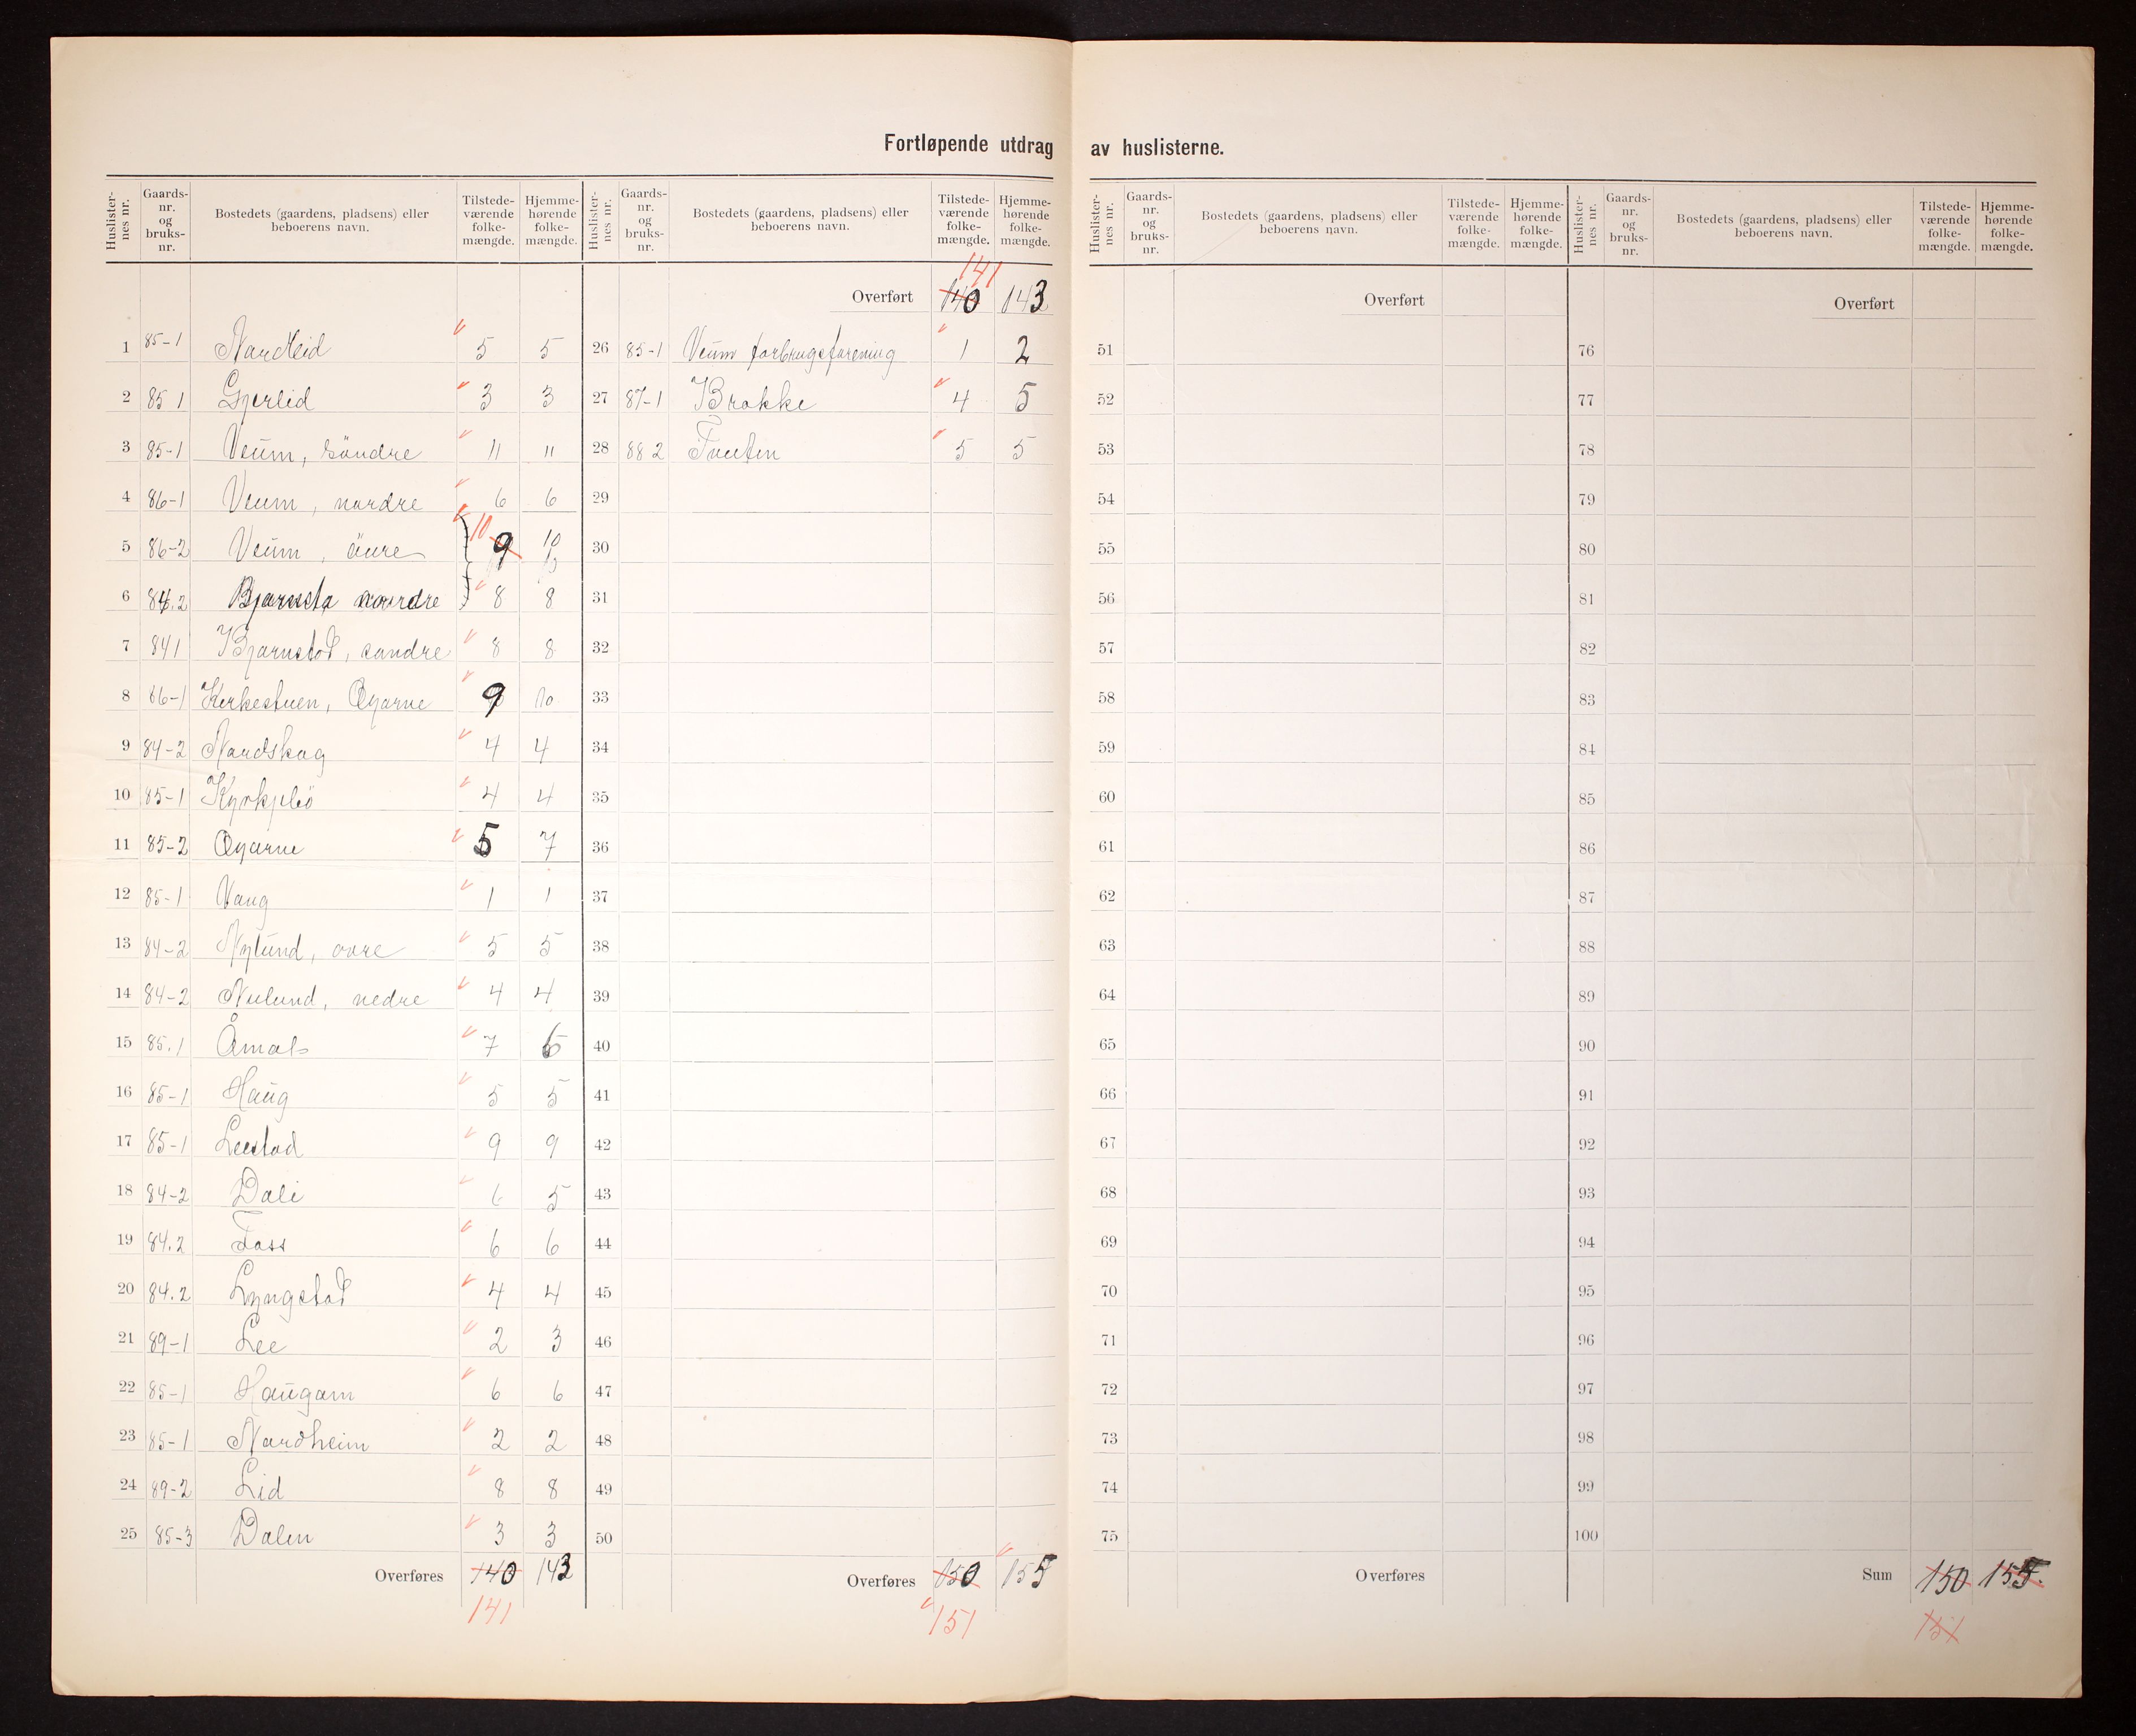 Fortløpende utdrag av huslisterne.
Huslisternes nr. Gaardsnr. og bruksnr. Bostedets (gaardens, pladsens) eller beboerens navn. Tilstedeværende folkemængde. Hjemmehørende folkemængde.
1 85-1 Nordlid 5 5
2 85 1 Gjerlid 3 3
3 85-1 Veum, söndre 11 11
4 86-1 Veum, nordre 6 6
5 86-2 Veum, äure 10 9 10
6 84.2 Bjørnsta nordre 8 8
7 84 1 Bjørnstad, søndre 8 8
8 86-1 Kirkestuen, Øyarne 9 10
9 84-2 Nordskog 4 4
10 85-1 Kyrkjebö 4 4
11 85-2 Øyarne 5 7
12 85-1 Vang 1 1
13 84-2 Nylund, øvre 5 5
14 84-2 Nulund, nedre 4 4
15 85.1 Åmot 7 6
16 85-1 Haug 5 5
17 85-1 Leestad 9 9
18 84-2 Dali 6 5
19 84.2 Foss 6 6
20 84.2 Lyngstad 4 4
21 89-1 Lee 2 3
22 85-1 Haugom 6 6
23 85-1 Nordheim 2 2
24 89-2 Lid 8 8
25 85-3 Dalen 3 3
Overføres 140 143
141
Huslisternes nr. Gaardsnr. og bruksnr. Bostedets (gaardens, pladsens) eller beboerens navn. Tilstedeværende folkemængde. Hjemmehørende folkemængde.
141
Overført 140 143
26 85-1 Veum forbrugsforening 1 2
27 87-1 Brokke 4 5
28 88 2 Tveiten 5 5
29
30
31
32
33
34
35
36
37
38
39
40
41
42
43
44
45
46
47
48
49
50
Overføres 150 155
151
Huslisternes nr. Gaardsnr. og bruksnr. Bostedets (gaardens, pladsens) eller beboerens navn. Tilstedeværende folkemængde. Hjemmehørende folkemængde.
Overført
51
52
53
54
55
56
57
58
59
60
61
62
63
64
65
66
67
68
69
70
71
72
73
74
75
Overføres
Huslisternes nr. Gaardsnr. og bruksnr. Bostedets (gaardens, pladsens) eller beboerens navn. Tilstedeværende folkemængde. Hjemmehørende folkemængde.
Overført
76
77
78
79
80
81
82
83
84
85
86
87
88
89
90
91
92
93
94
95
96
97
98
99
100
Sum 150 155.
151